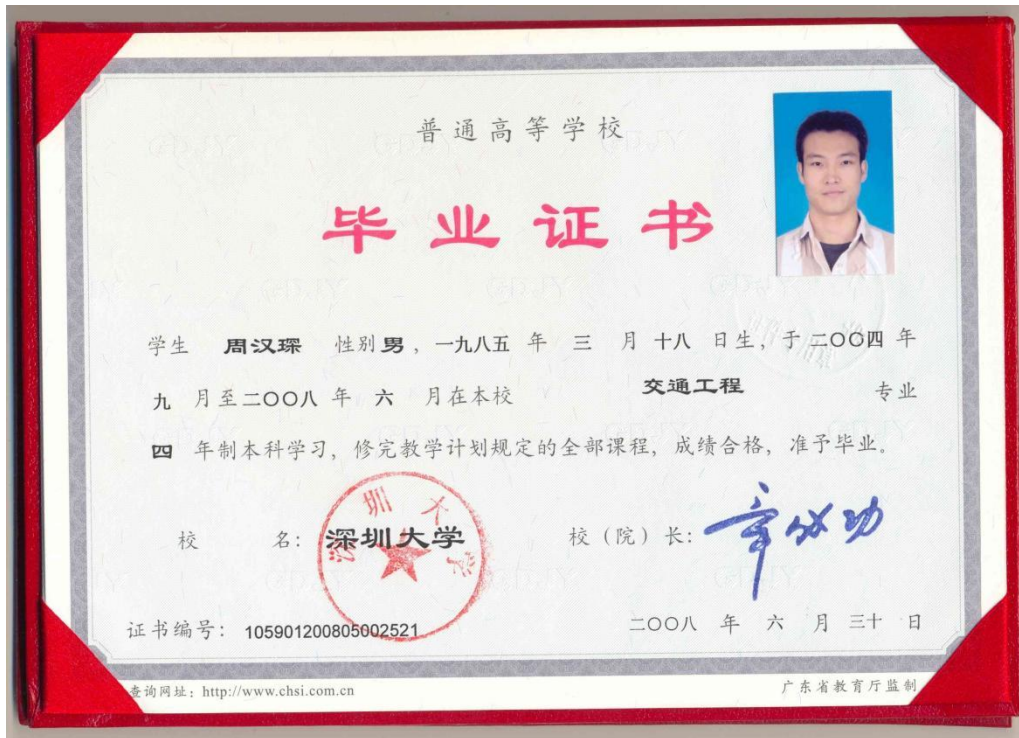 普通高等学校
毕业证书
学生 周汉琛 性别 男，一九八五 年 三 月 十八 日生，于 二〇〇四 年
九 月至 二〇〇八 年 六 月在本校 交通工程 专业
四 年制本科学习，修完教学计划规定的全部课程，成绩合格，准予毕业。
校 名：深圳大学 校（院）长：章必功
深圳大学
证书编号：105901200805002521 二〇〇八 年 六 月 三十 日
查询网址：http://www.chsi.com.cn 广东省教育厅监制